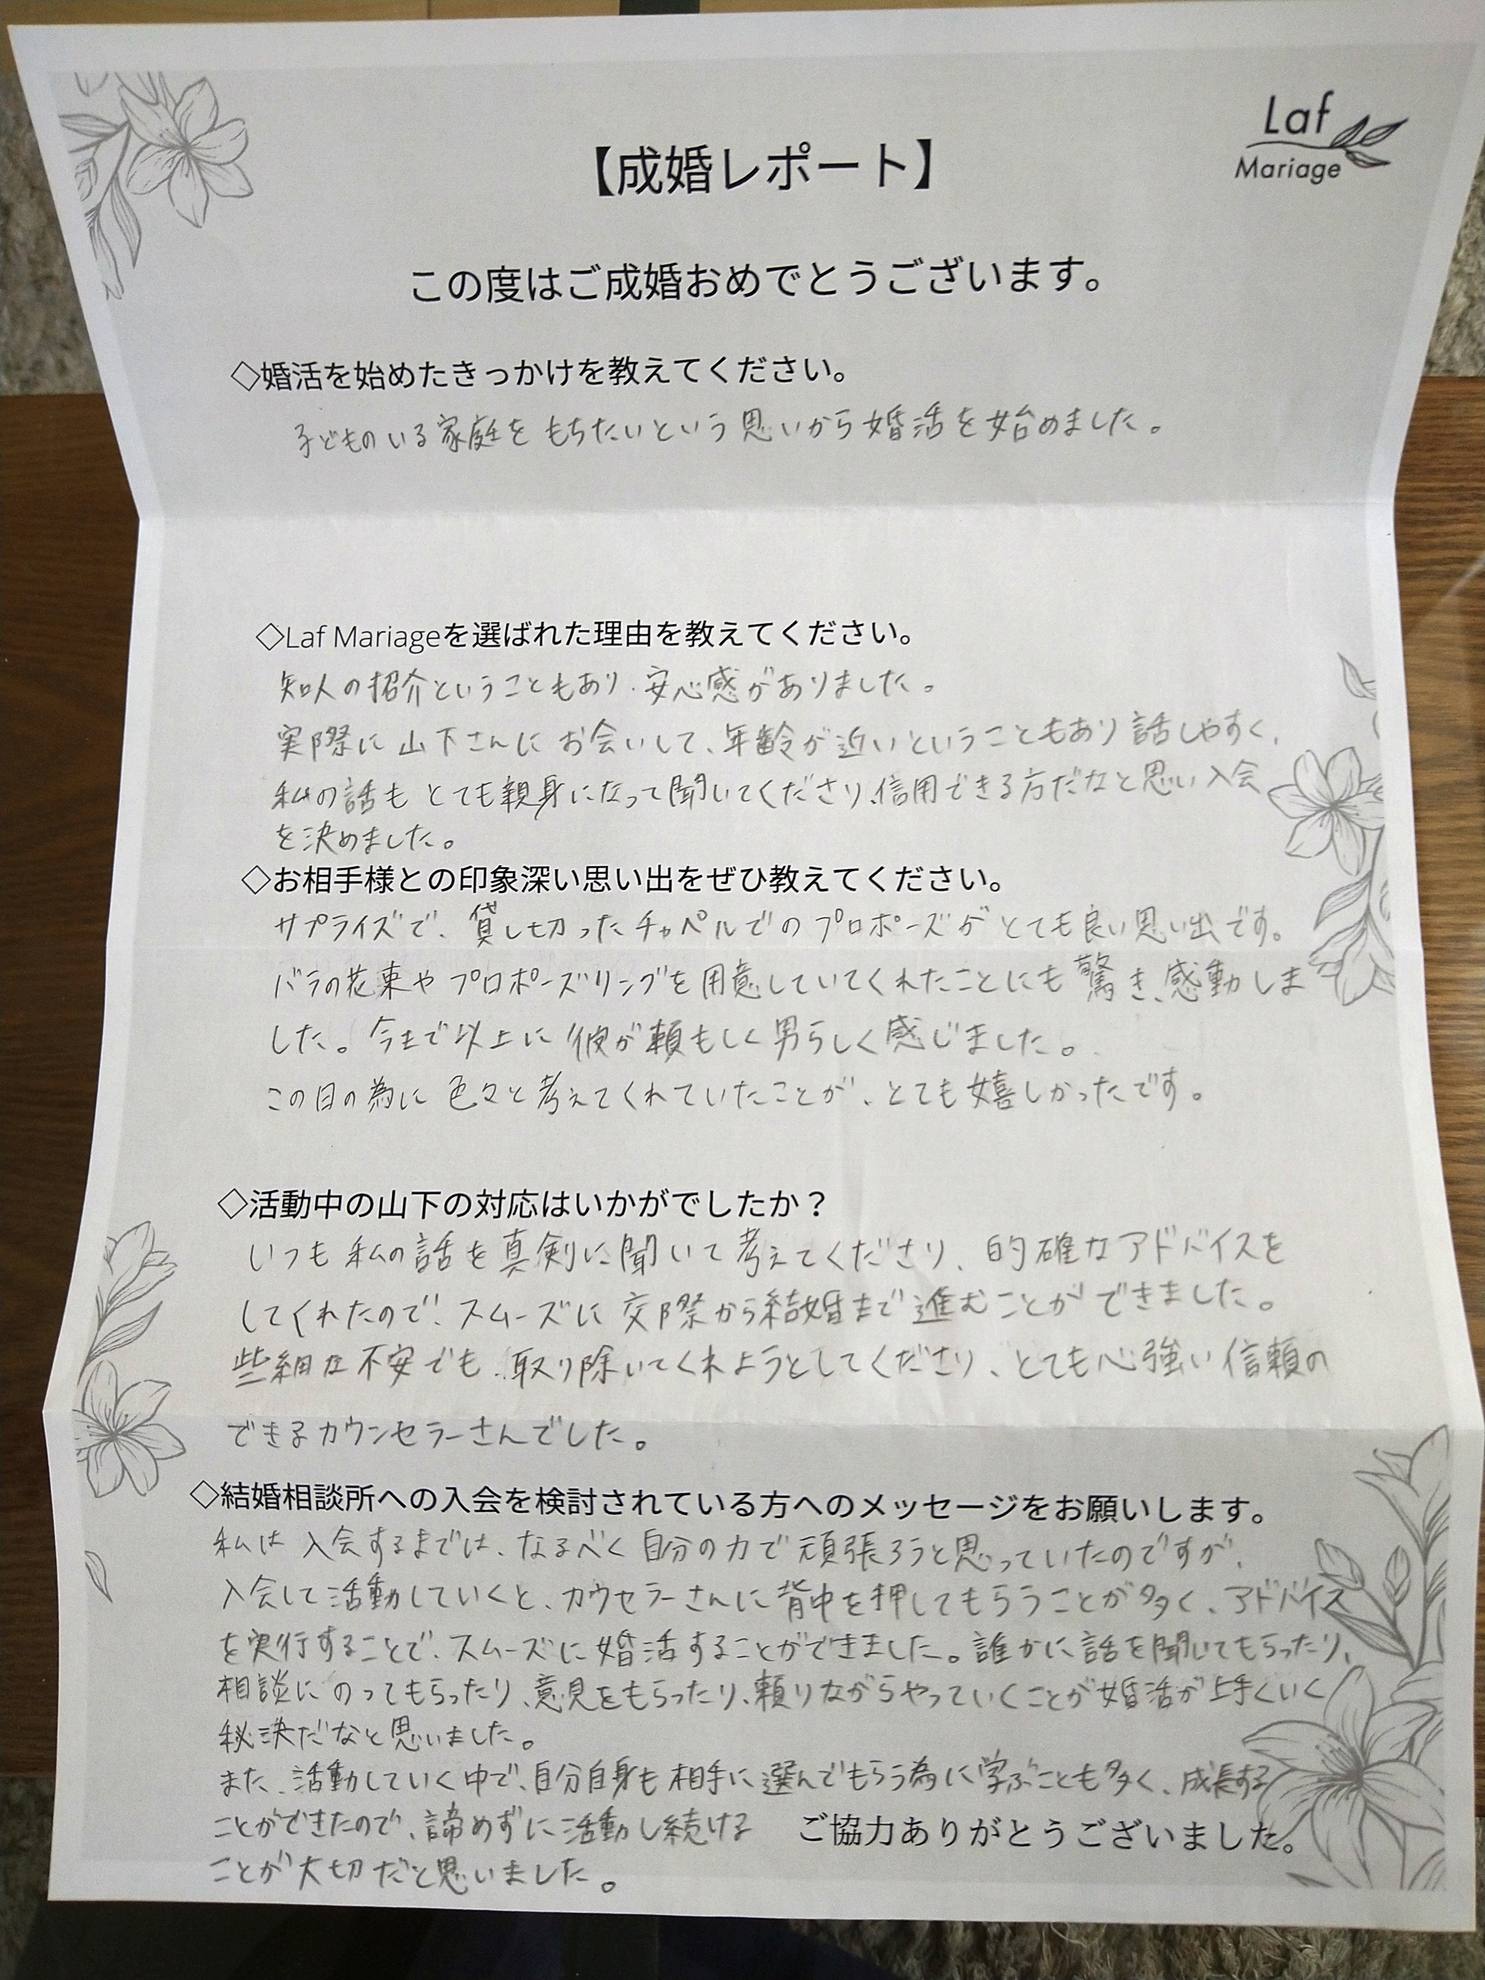 Laf
Mariage
【成婚レポート】
この度はご成婚おめでとうございます。
◇婚活を始めたきっかけを教えてください。
子どものいる家庭をもちたいという思いから婚活を始めました。
◇Laf Mariageを選ばれた理由を教えてください。
知人の紹介ということもあり、安心感がありました。
実際に山下さんにお会いして、年齢が近いということもあり話しやすく、
私の話もとても親身になって聞いてくださり、信用できる方だなと思い入会
を決めました。
◇お相手様との印象深い思い出をぜひ教えてください。
サプライズで、貸し切ったチャペルでのプロポーズがとても良い思い出です。
バラの花束やプロポーズリングを用意していてくれたことにも驚き、感動しま
した。今まで以上に彼が頼もしく男らしく感じました。
この日の為に色々と考えてくれていたことが、とても嬉しかったです。
◇活動中の山下の対応はいかがでしたか？
いつも私の話を真剣に聞いて考えてくださり、的確なアドバイスを
してくれたので、スムーズに交際から結婚まで進むことができました。
些細な不安でも、取り除いてくれようとしてくださり、とても心強い信頼の
できるカウンセラーさんでした。
◇結婚相談所への入会を検討されている方へのメッセージをお願いします。
私は入会するまでは、なるべく自分の力で頑張ろうと思っていたのですが、
入会して活動していくと、カウセラーさんに背中を押してもらうことが多く、アドバイス
を実行することで、スムーズに婚活することができました。誰かに話を聞いてもらったり、
相談にのってもらったり、意見をもらったり、頼りながらやっていくことが婚活が上手くいく
秘決だなと思いました。
また、活動していく中で、自分自身も相手に選んでもらう為に学ぶことも多く、成長する
ことができたので、諦めずに活動し続ける
ことが大切だと思いました。
ご協力ありがとうございました。